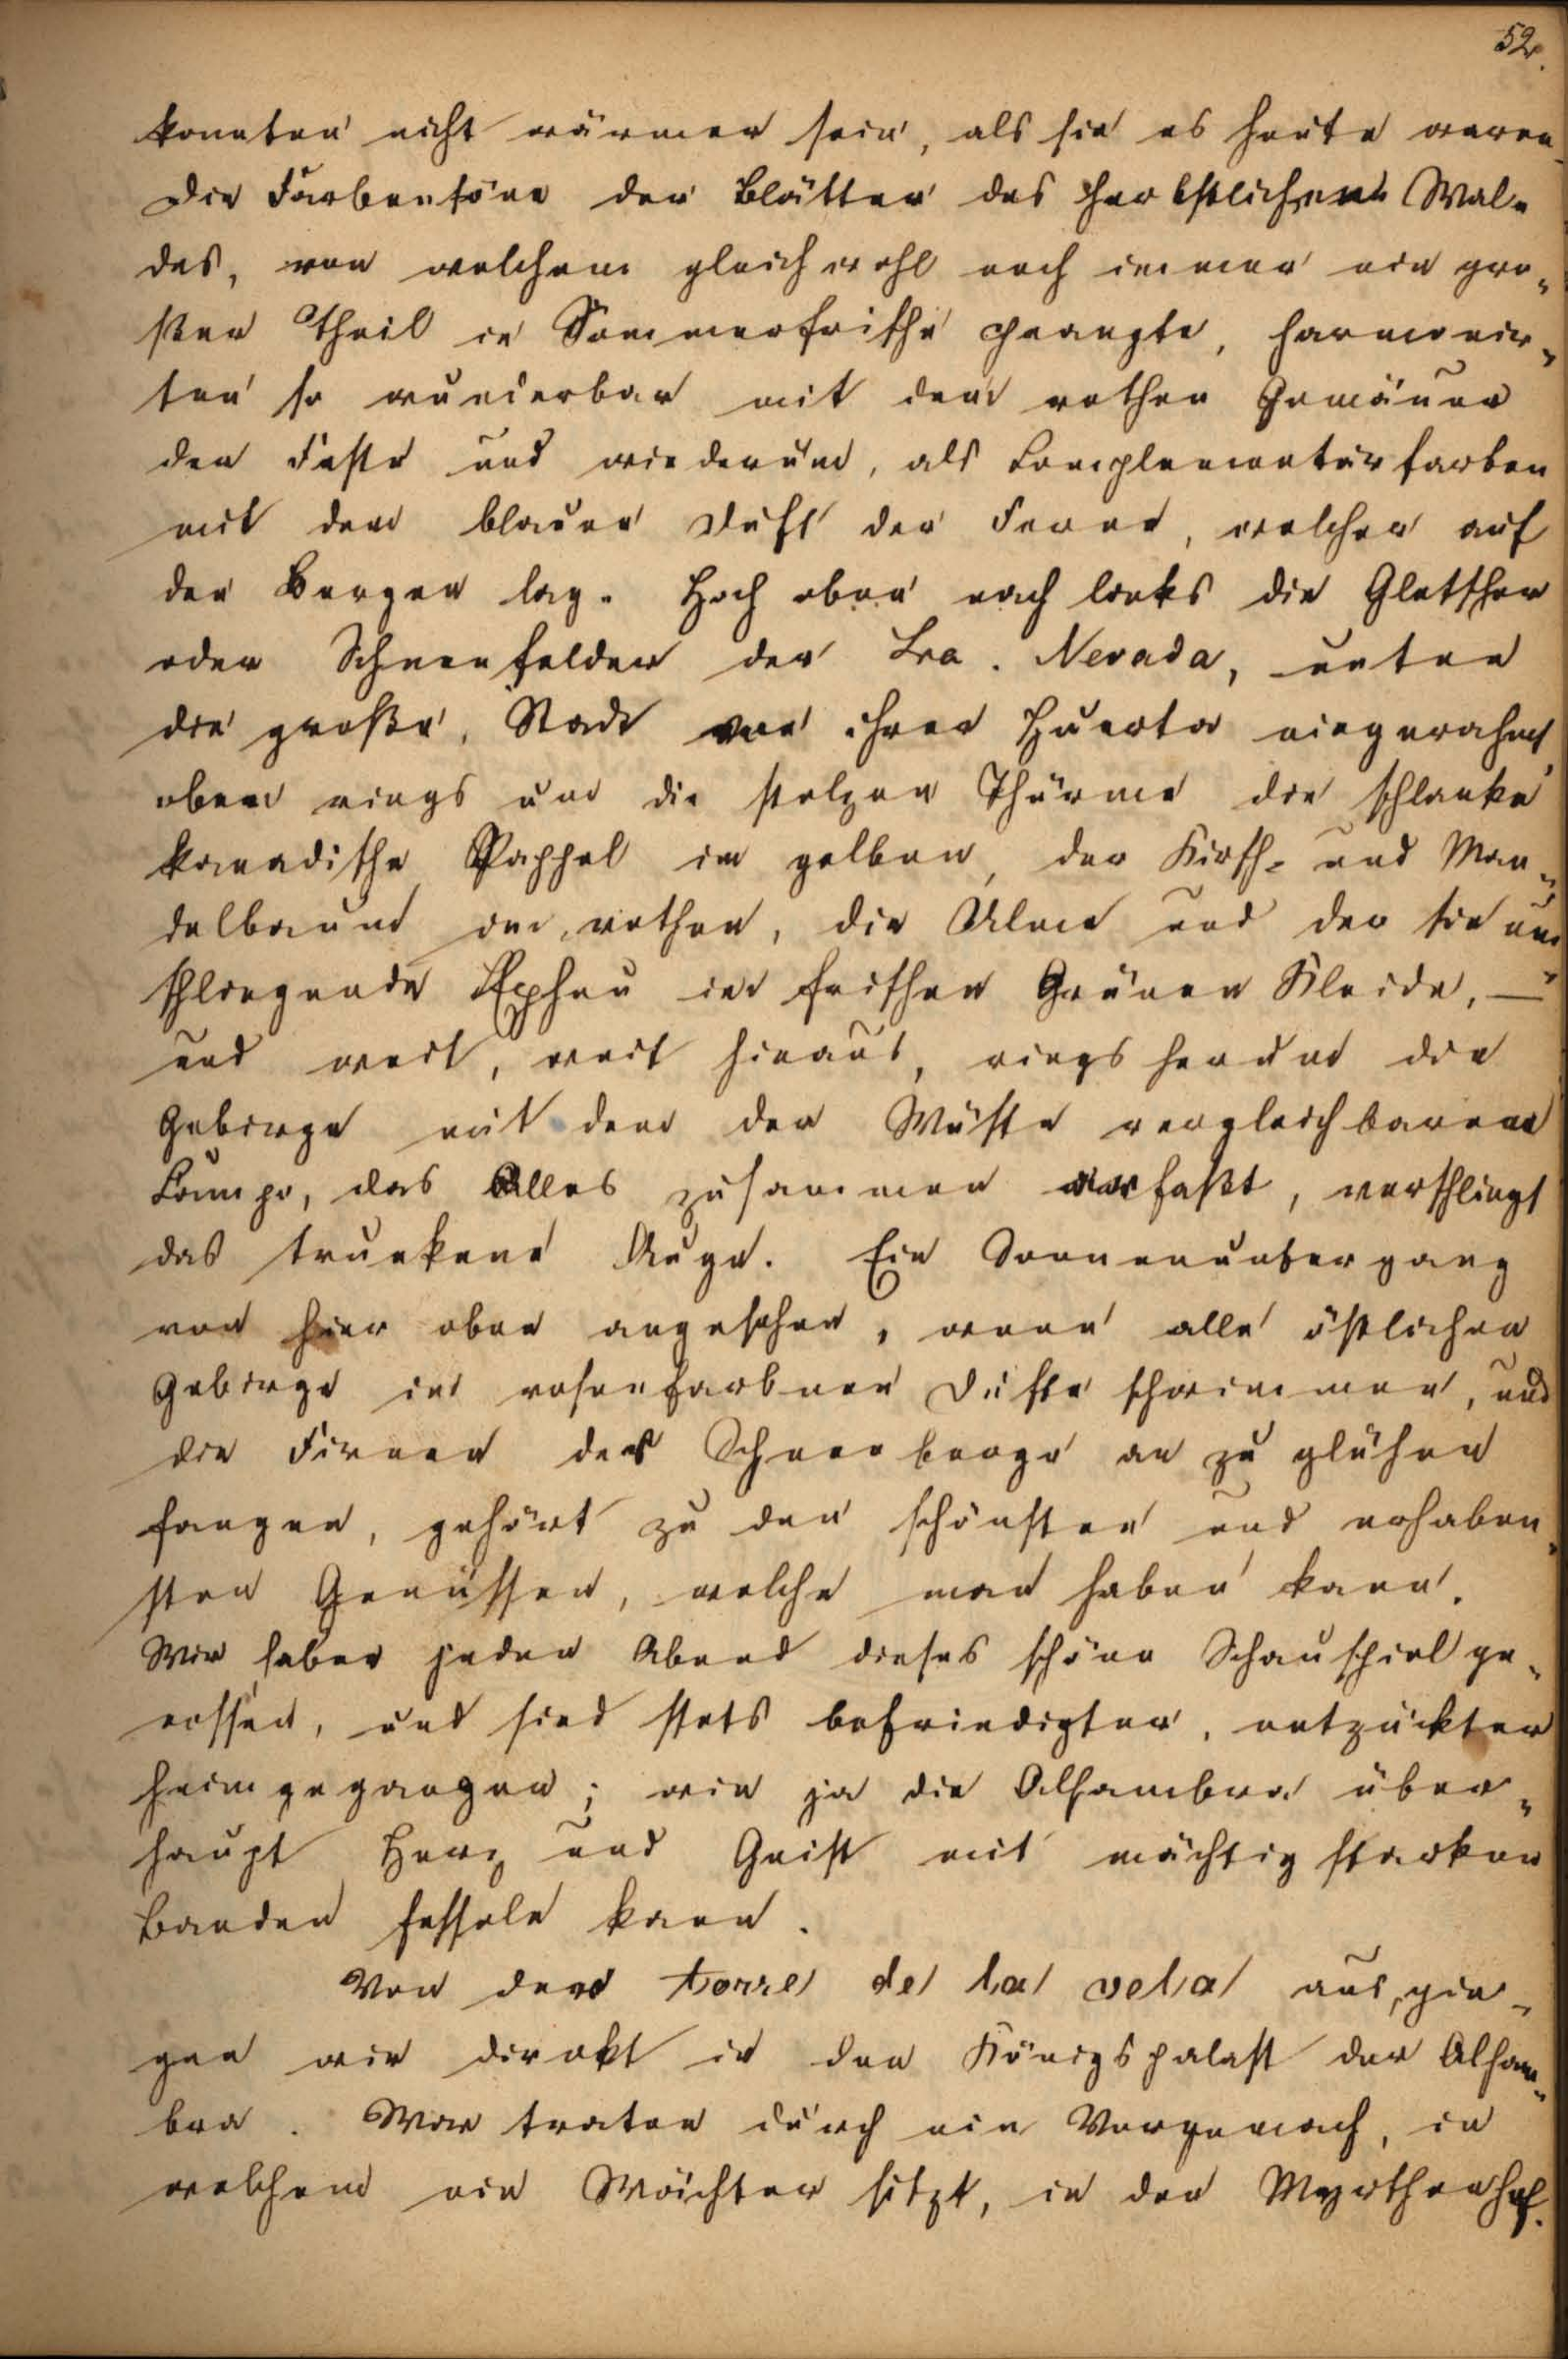 52.
konnten nicht wärmer sein, als sie es heute waren.
Die Farbentöne der Blätter des herbstlichen Wal-
des, von welchem gleichwohl noch immer ein gro-
ßer Theil in Sommerfrische prangte, harmonir-
ten so wunderbar mit dem rothen Gemäuer
der Feste und wiederum, als Complementärfarben
mit dem blauen Duft der Ferne, welcher auf
den Bergen lag. Hoch oben nach links die Gletscher
oder Schneefelder der Sra. Nevada, unten
die große Stadt von ihrer Huerta eingerahmt,
oben rings um die stolzen Thürme die schlanke
kanadische Pappel im gelben, der Kirsch- und Man-
delbaum im rothen, die Ulme und der sie um-
schlingende Epheu im frischen Grünen Kleide, —
und weit, weit hinaus, rings herum die
Gebirge mit dem der Wüste vergleichbaren
Campo, das Alles zusammen erfaßt, verschlingt
das trunkene Auge. Ein Sonnenuntergang
von hier oben angesehen, wenn alle östlichen
Gebirge im rosenfarbnen Dufte schwimmen, und
die Firnen der Schneeberge an zu glühen
fangen, gehört zu den schönsten und erhaben-
sten Genüssen, welche man haben kann.
Wir haben jeden Abend dieses schöne Schauspiel ge-
nossen, und sind stets befriedigter, entzückter
heimgegangen; wie ja die Alhambra über-
haupt Herz und Geist mit mächtig starken
Banden fesseln kann.
Von dem torre de la vela aus, gin-
gen wir direkt in den Königspalast der Alham-
bra. Wir traten durch ein Vorgemach, in
welchem ein Wächter sitzt, in den Myrthenhof.